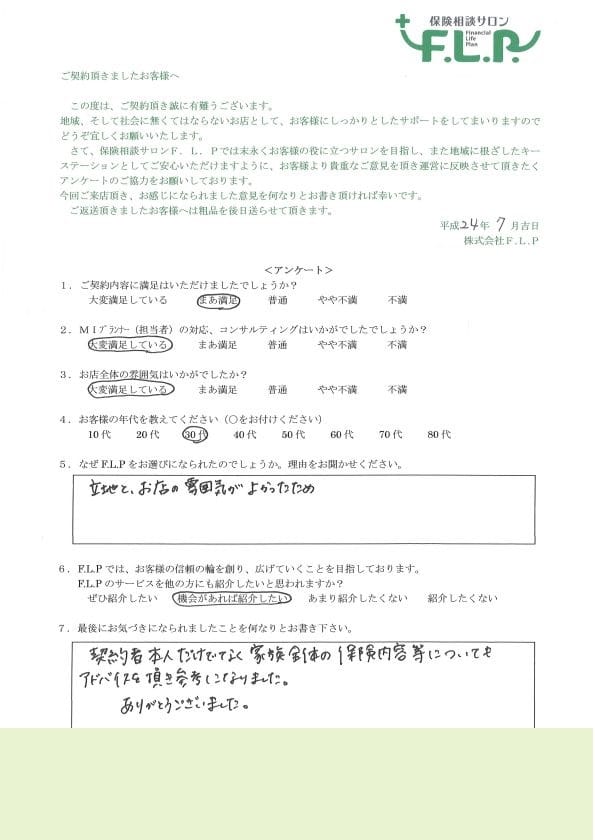 保険相談サロン
F.L.P.
Financial
Life
Plan
ご契約頂きましたお客様へ
この度は、ご契約頂き誠に有難うございます。
地域、そして社会に無くてはならないお店として、お客様にしっかりとしたサポートをしてまいりますので
どうぞ宜しくお願いいたします。
さて、保険相談サロンF．L．Pでは末永くお客様の役に立つサロンを目指し、また地域に根ざしたキー
ステーションとしてご安心いただけますように、お客様より貴重なご意見を頂き運営に反映させて頂きたく
アンケートのご協力をお願いしております。
今回ご来店頂き、お感じになられました意見を何なりとお書き頂ければ幸いです。
ご返送頂きましたお客様へは粗品を後日送らせて頂きます。
平成24年 7月吉日
株式会社F.L.P
＜アンケート＞
1．ご契約内容に満足はいただけましたでしょうか？
大変満足している まあ満足 普通 やや不満 不満
2．MIプランナー（担当者）の対応、コンサルティングはいかがでしたでしょうか？
大変満足している まあ満足 普通 やや不満 不満
3．お店全体の雰囲気はいかがでしたか？
大変満足している まあ満足 普通 やや不満 不満
4．お客様の年代を教えてください（○をお付けください）
10代 20代 30代 40代 50代 60代 70代 80代
5．なぜF.L.Pをお選びになられたのでしょうか。理由をお聞かせください。
立地と、お店の雰囲気がよかったため
6．F.L.Pでは、お客様の信頼の輪を創り、広げていくことを目指しております。
F.L.Pのサービスを他の方にも紹介したいと思われますか？
ぜひ紹介したい 機会があれば紹介したい あまり紹介したくない 紹介したくない
7．最後にお気づきになられましたことを何なりとお書き下さい。
契約者本人だけでなく家族全体の保険内容等についても
アドバイスを頂き参考になりました。
ありがとうございました。